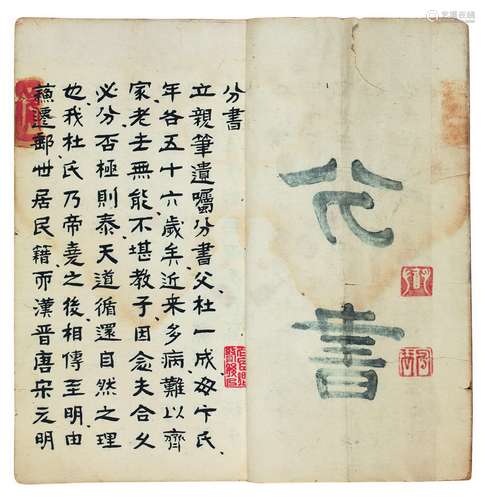 分書
分書
立親筆遺囑分書父杜一成母卞氏
年各五十六歲矣近来多病難以齊
家老去無能不堪教子因念夫合久
必分否極則泰天道循還自然之理
也我杜氏乃帝堯之後相傳至明由
蘓遷鄒世居民籍而漢晋唐宋元明